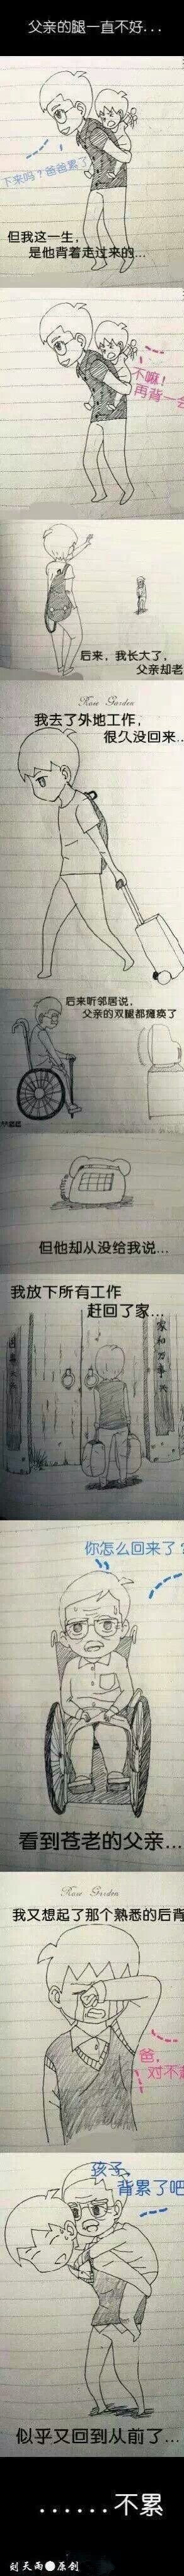 父亲的腿一直不好...
下来吗？爸爸累了
但我这一生，
是他背着走过来的...
不嘛！
再背一会
后来，我长大了，
父亲却老
Rose Garden
我去了外地工作，
很久没回来..
后来听邻居说，
父亲的双腿都瘫痪了
但他却从没给我说...
我放下所有工作
赶回了家...
家和万事兴
你怎么回来了？
看到苍老的父亲...
Rose Garden
我又想起了那个熟悉的后背
爸，
对不起
孩子，
背累了吧
似乎又回到从前了...
......不累
刘天雨●原创